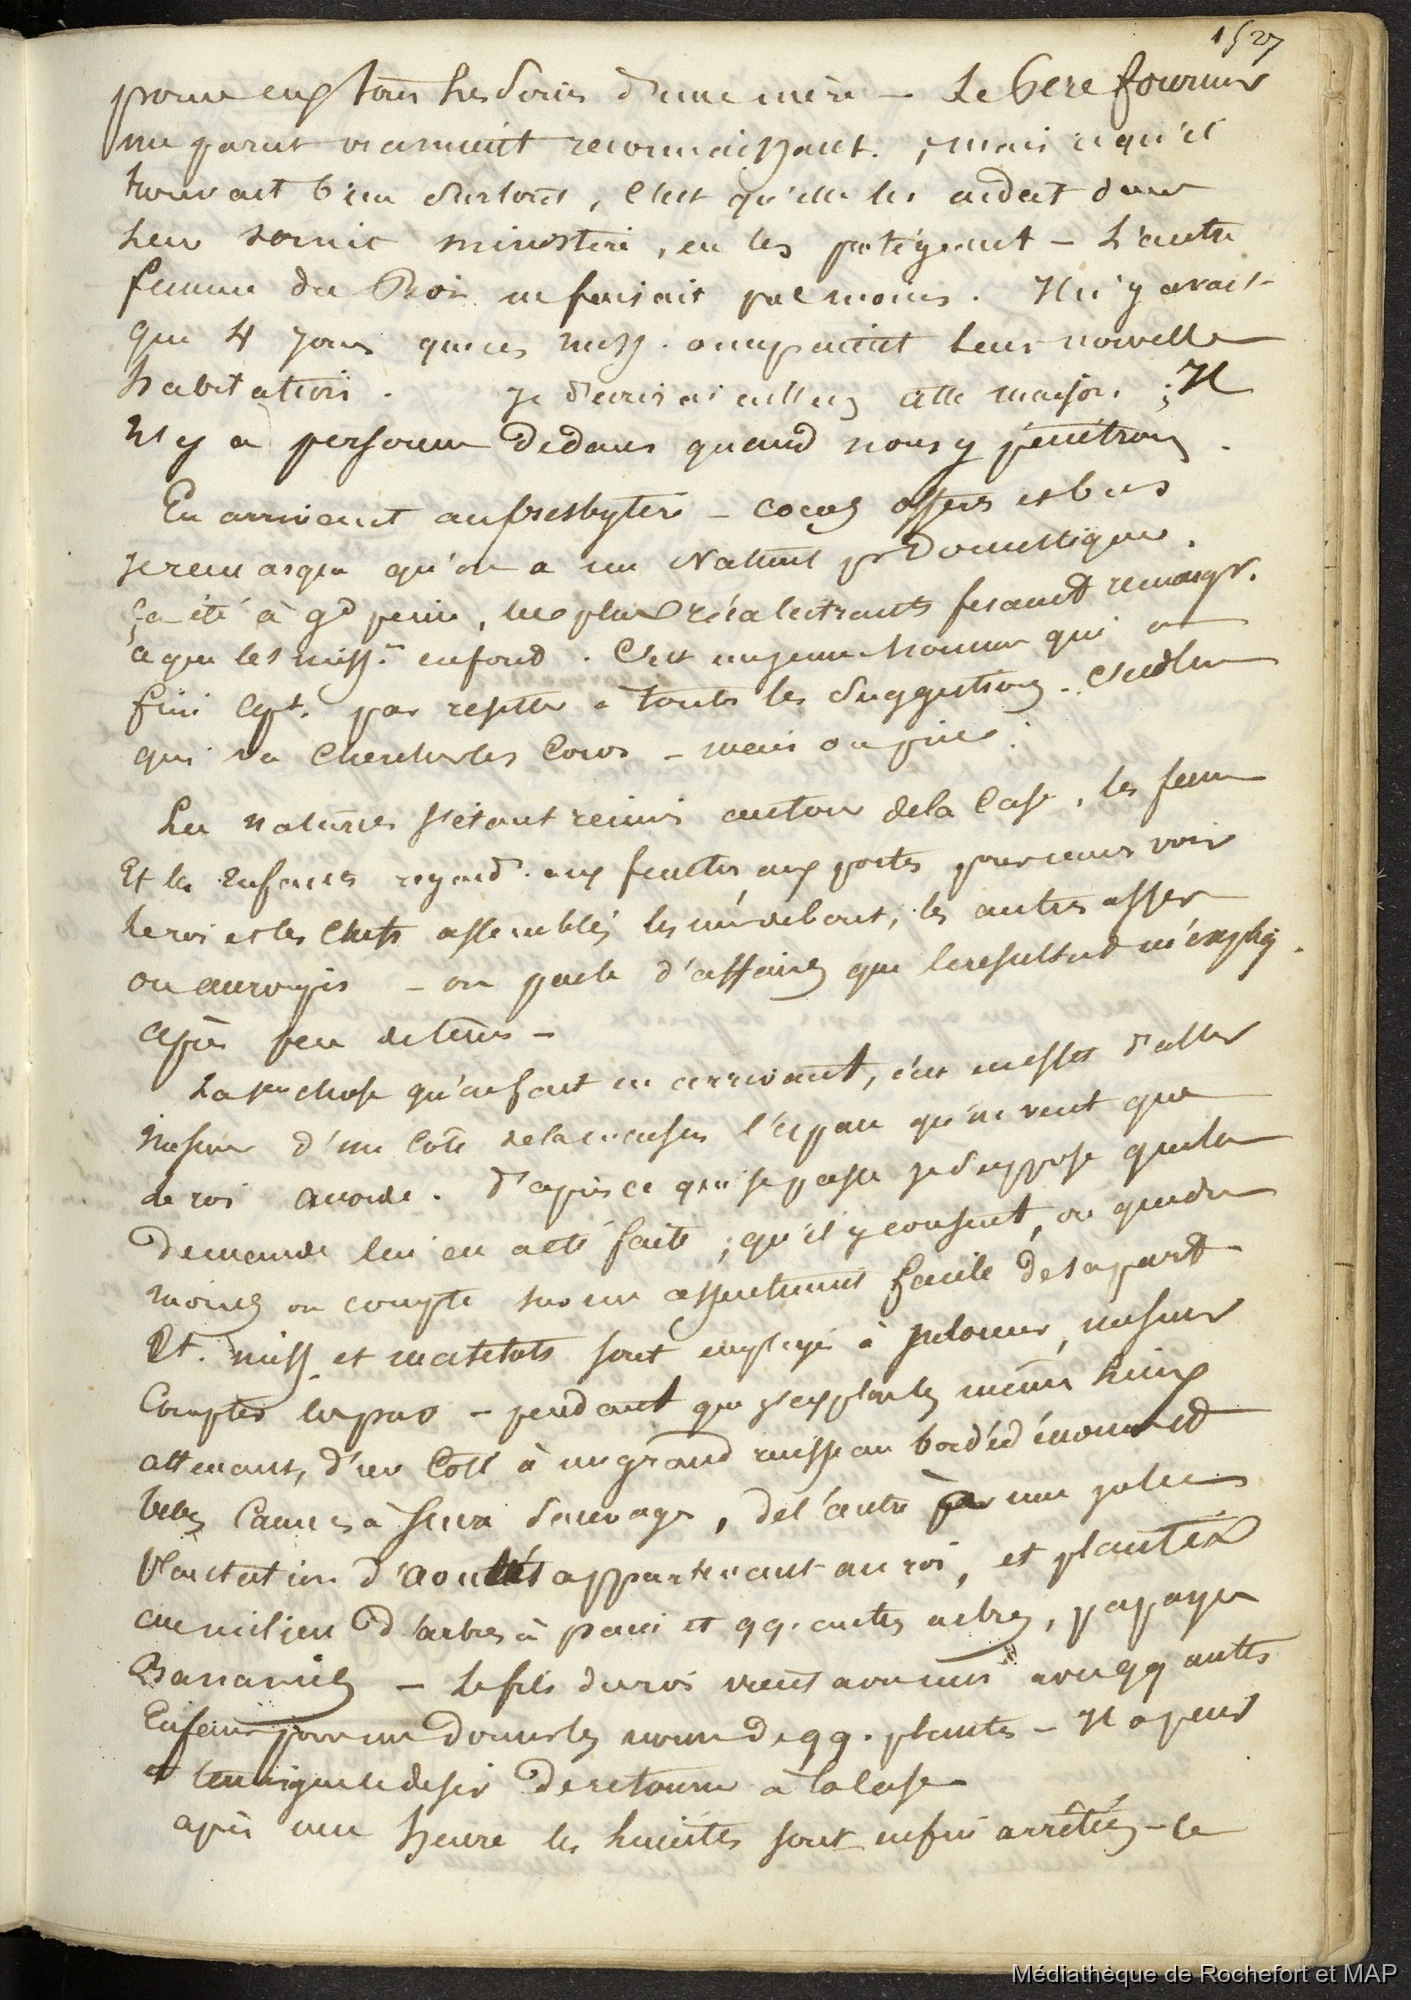 1527
pour eux tous les soins d'une mère – Le Père fournier
me parut vraiment reconnaissant. ; mais ce qu'il
trouvait bien surtout, c'est qu'elle les aidat dans
leur ministère, en les protégeant – L'autre
femme du Roi ne faisait pas moins. Il n'y avait
que 4 jours que ces miss. occupaient leur nouvelle
habitation. Je décrirai ailleurs cette maison ; Il
n'y a personne dedans quand nous y pénétrons.
En arrivant au presbytère – cocos offerts et bus
Je remarque qu'on a un Naturel pr Domestique.
ça été à gd peine, les plus récalcitrants fesant remarqr.
à que les miss. en font. C'est un jeune homme qui a
fini cept. par resister à toutes les suggestions. C'est lui
qui va chercher les cocos –
Les naturels s'étant réunis autour de la Case, les femmes
Et les Enfants regardt. aux fenêtres, aux portes pour nous voir
le roi et les Chefs assemblés les uns debout, les autres assis
ou accroupis – on parle d'affaires que le resultat m'expliq.
après peu de tems –
La 1ere chose qu'on fait en arrivant, c'est d'aller
mesurer d'un côté de la maison l'espace qu'on veut que
le roi accorde. D'après ce qui se passe je suppose que la
Demande lui en a été faite ; qu'il y consent, ou que du
moins on compte sur un assentiment facile de sa part
Et. miss. et matelots sont employés à jalonner, mesurer
Compter les pas – pendant que j'explore les mêmes lieux
attenant, d'un Côté à un grand ruisseau bordé d'énormes et
belles Cannes à Sucre Sauvages, de l'autre à une jolie
Plantation d'aoutés appartenant au roi, et plantée
au milieu d'arbres à pain et qq. autres arbres, papayers
Bananiers – Le fils du roi vient avec moi avec qq autres
Enfans pour me Donner les noms de qq. plantes – Il a peur
et témoigne le désir De retourner à la case
après une heure les limites sont enfin arrêtées – ce
Médiathèque de Rochefort et MAP